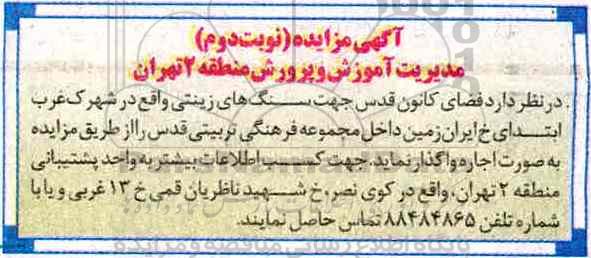 آگهی مزایده (نوبت دوم)
مدیریت آموزش و پرورش منطقه ۲ تهران
در نظر دارد فضای کانون قدس جهت سنگ‌های زینتی واقع در شهرک غرب
ابتدای خ ایران زمین داخل مجموعه فرهنگی تربیتی قدس را از طریق مزایده
به صورت اجاره واگذار نماید. جهت کسب اطلاعات بیشتر به واحد پشتیبانی
منطقه ۲ تهران، واقع در کوی نصر، خ شهید ناظریان قمی خ ۱۳ غربی و یا با
شماره تلفن ۸۸۴۸۴۸۶۵ تماس حاصل نمایند.
پایگاه اطلاع رسانی مناقصه و مزایده